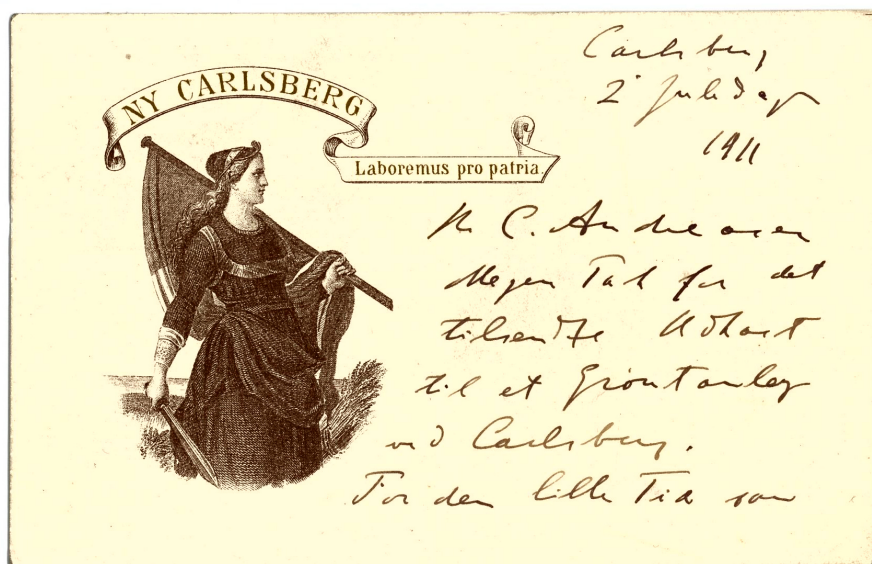 NY CARLSBERG
Laboremus pro patria.
Carlsberg
2' Juledag
1911
Hr C. Andreasen
Megen Tak for det
tilsendte Udkast
til et Grøntanlæg
ved Carlsberg.
For den lille Tid som